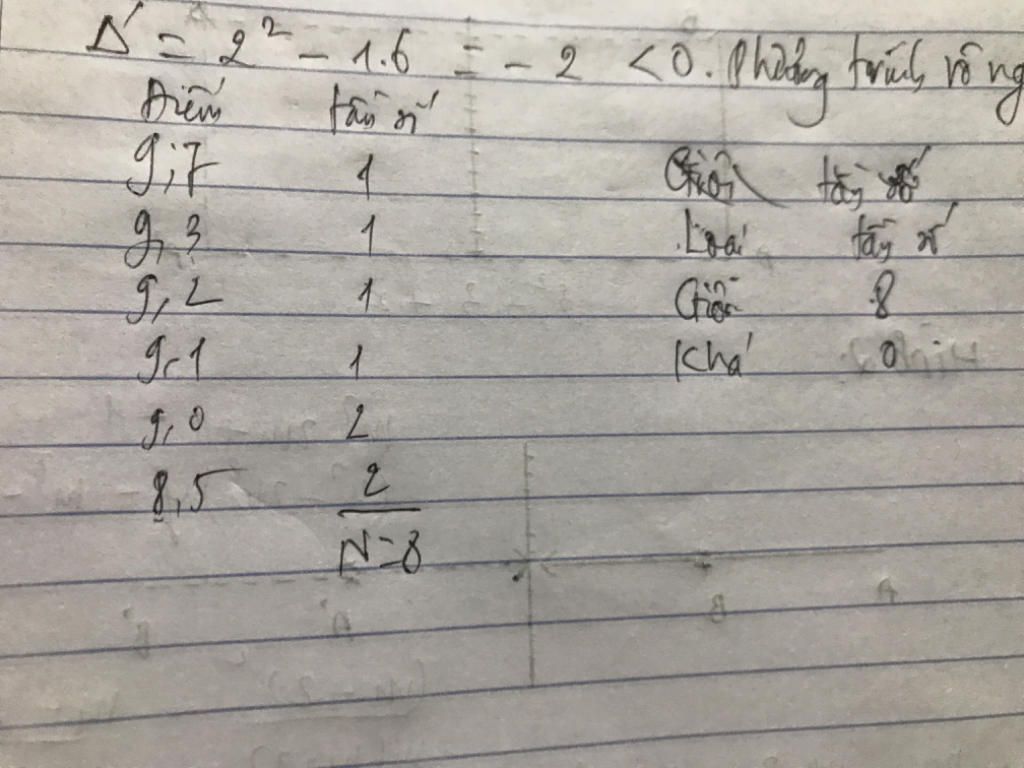 Δ' = 2² - 1.6 = - 2 < 0. Phương trình vô ng
Điểm tần số
9,7 1
9,3 1
9,2 1
9,1 1
9,0 2
8,5 2
N=8
Giỏi tần số
Loại tần số
Giỏi 8
Khá 0